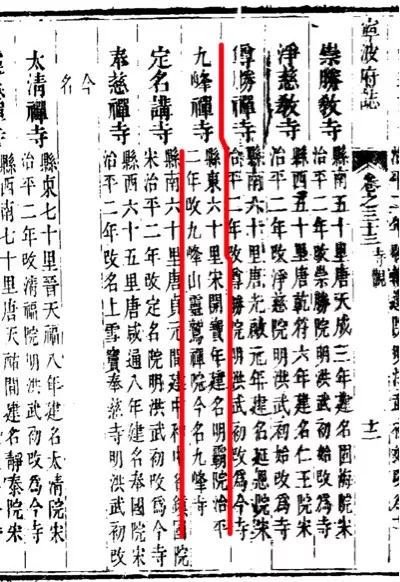 寧波府誌
卷之三十三 寺觀
十二
崇勝教寺 縣南五十里唐天成三年建名固海院宋
治平二年改崇勝院明洪武初始改為寺
淨慈教寺 縣西五十里唐乾符六年建名仁王院宋
治平二年改淨慈院明洪武初始改為寺
尊勝禪寺 縣南六十里唐光啟元年建名延恩院宋
治平二年改尊勝院明洪武初改為今寺
九峰禪寺 縣東六十里宋開寶年建名明霸院治平
二年改九峰山靈鷲禪院今名九峰寺
定名講寺 縣南六十里唐貞元間建中和中名鎮國院
宋治平二年改定名院明洪武初改為今寺
奉慈禪寺 縣西六十五里唐咸通八年建名奉國院宋
治平二年改名上雪竇奉慈寺明洪武初改
今名
太清禪寺 縣東七十里晉天福八年建名太清院宋
治平二年改清福院明洪武初改為今寺
縣西南七十里唐天祐間建名靜泰院宋